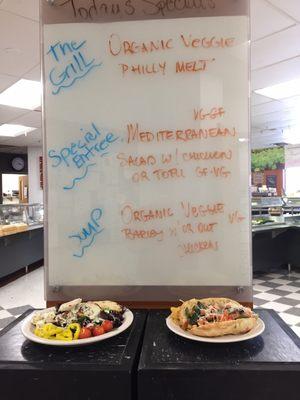 Today's Specials
The Grill
Organic Veggie
Philly Melt
Special Entree
VG-GF
Mediterranean
Salad w/ Chicken
or Tofu GF-VG
Soup
Organic Veggie
Barley w/ or out VG
Chicken